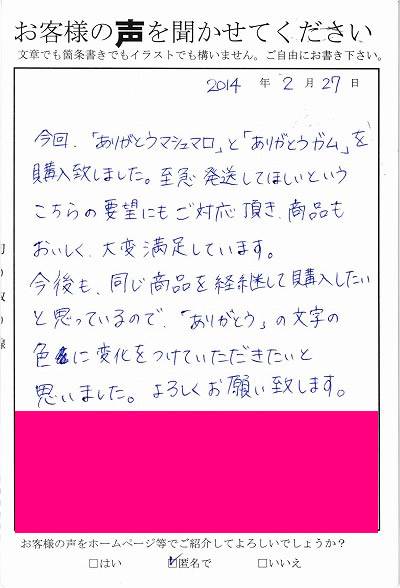 お客様の声を聞かせてください
文章でも箇条書きでもイラストでも構いません。ご自由にお書き下さい。
2014 年 2 月 27 日
今回、「ありがとうマシュマロ」と「ありがとうガム」を
購入致しました。至急発送してほしいという
こちらの要望にもご対応頂き、商品も
おいしく、大変満足しています。
今後も、同じ商品を経継して購入したい
と思っているので、「ありがとう」の文字の
色に変化をつけていただきたいと
思いました。よろしくお願い致します。
お客様の声をホームページ等でご紹介してよろしいでしょうか？
□はい ☑匿名で □いいえ